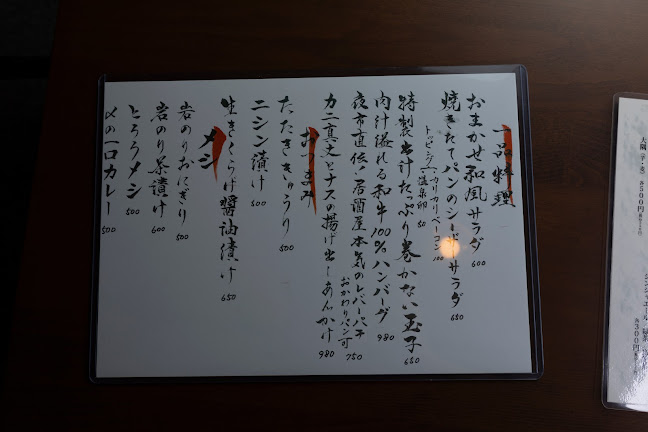 一品料理
おまかせ和風サラダ 600
焼きたてパンのシーザーサラダ 650
トッピング カリカリベーコン 100
温泉卵 50
特製出汁たっぷり巻かない玉子 650
肉汁溢れる和牛100%ハンバーグ 980
夜市直伝!居酒屋本気のレバーパテ 750
おかわりパン可
カニ真丈とナスの揚げ出しあんかけ 980
おつまみ
たたききゅうり 500
ニシン漬け 500
生きくらげ醤油漬け 650
メシ
岩のりおにぎり 500
岩のり茶漬け 600
とろろメシ 500
〆の一口カレー 500
大隅(芋・麦)
各500円
各300円